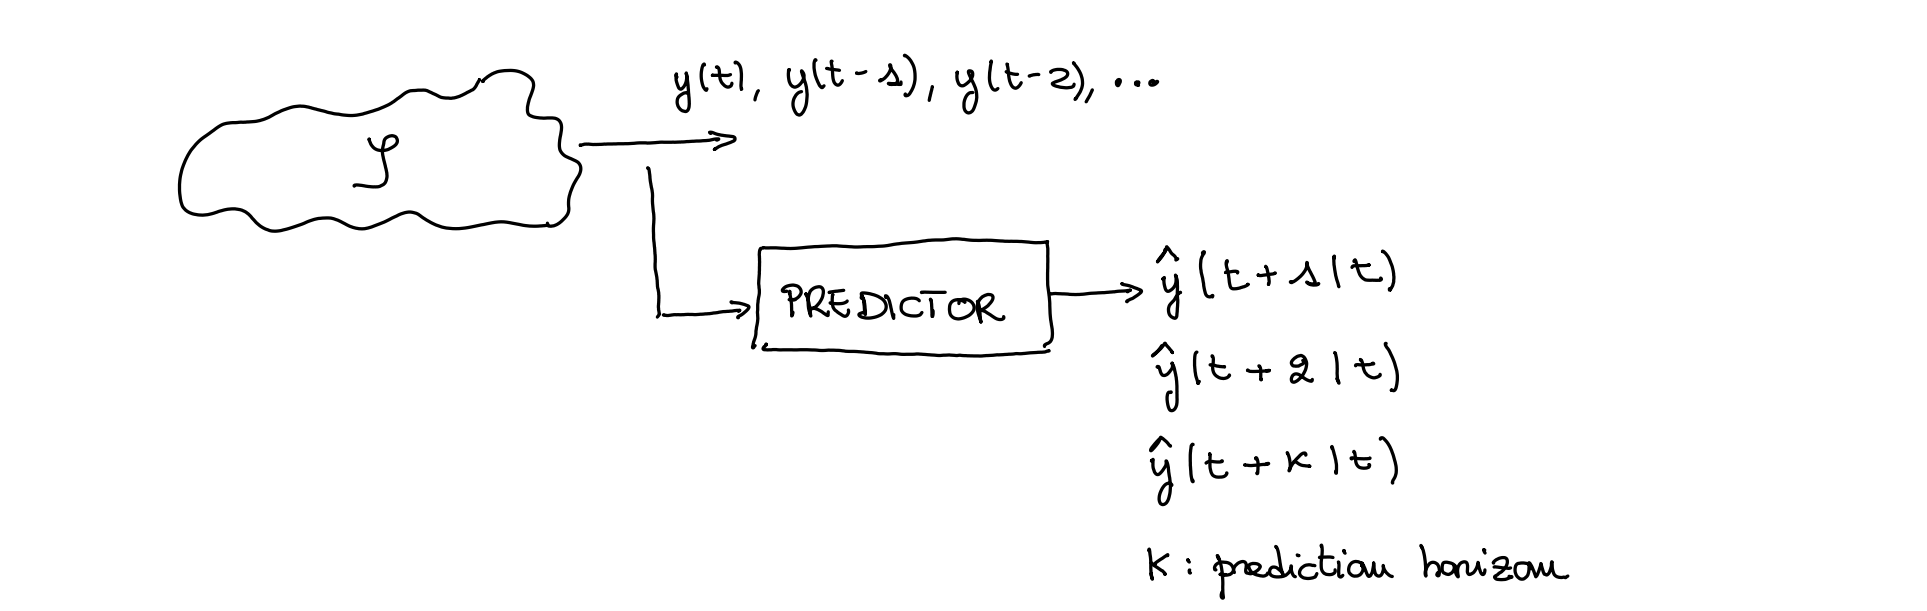 y(t), y(t-1), y(t-2), ...
𝒮
PREDICTOR
ŷ(t+1|t)
ŷ(t+2|t)
ŷ(t+k|t)
k: prediction horizon